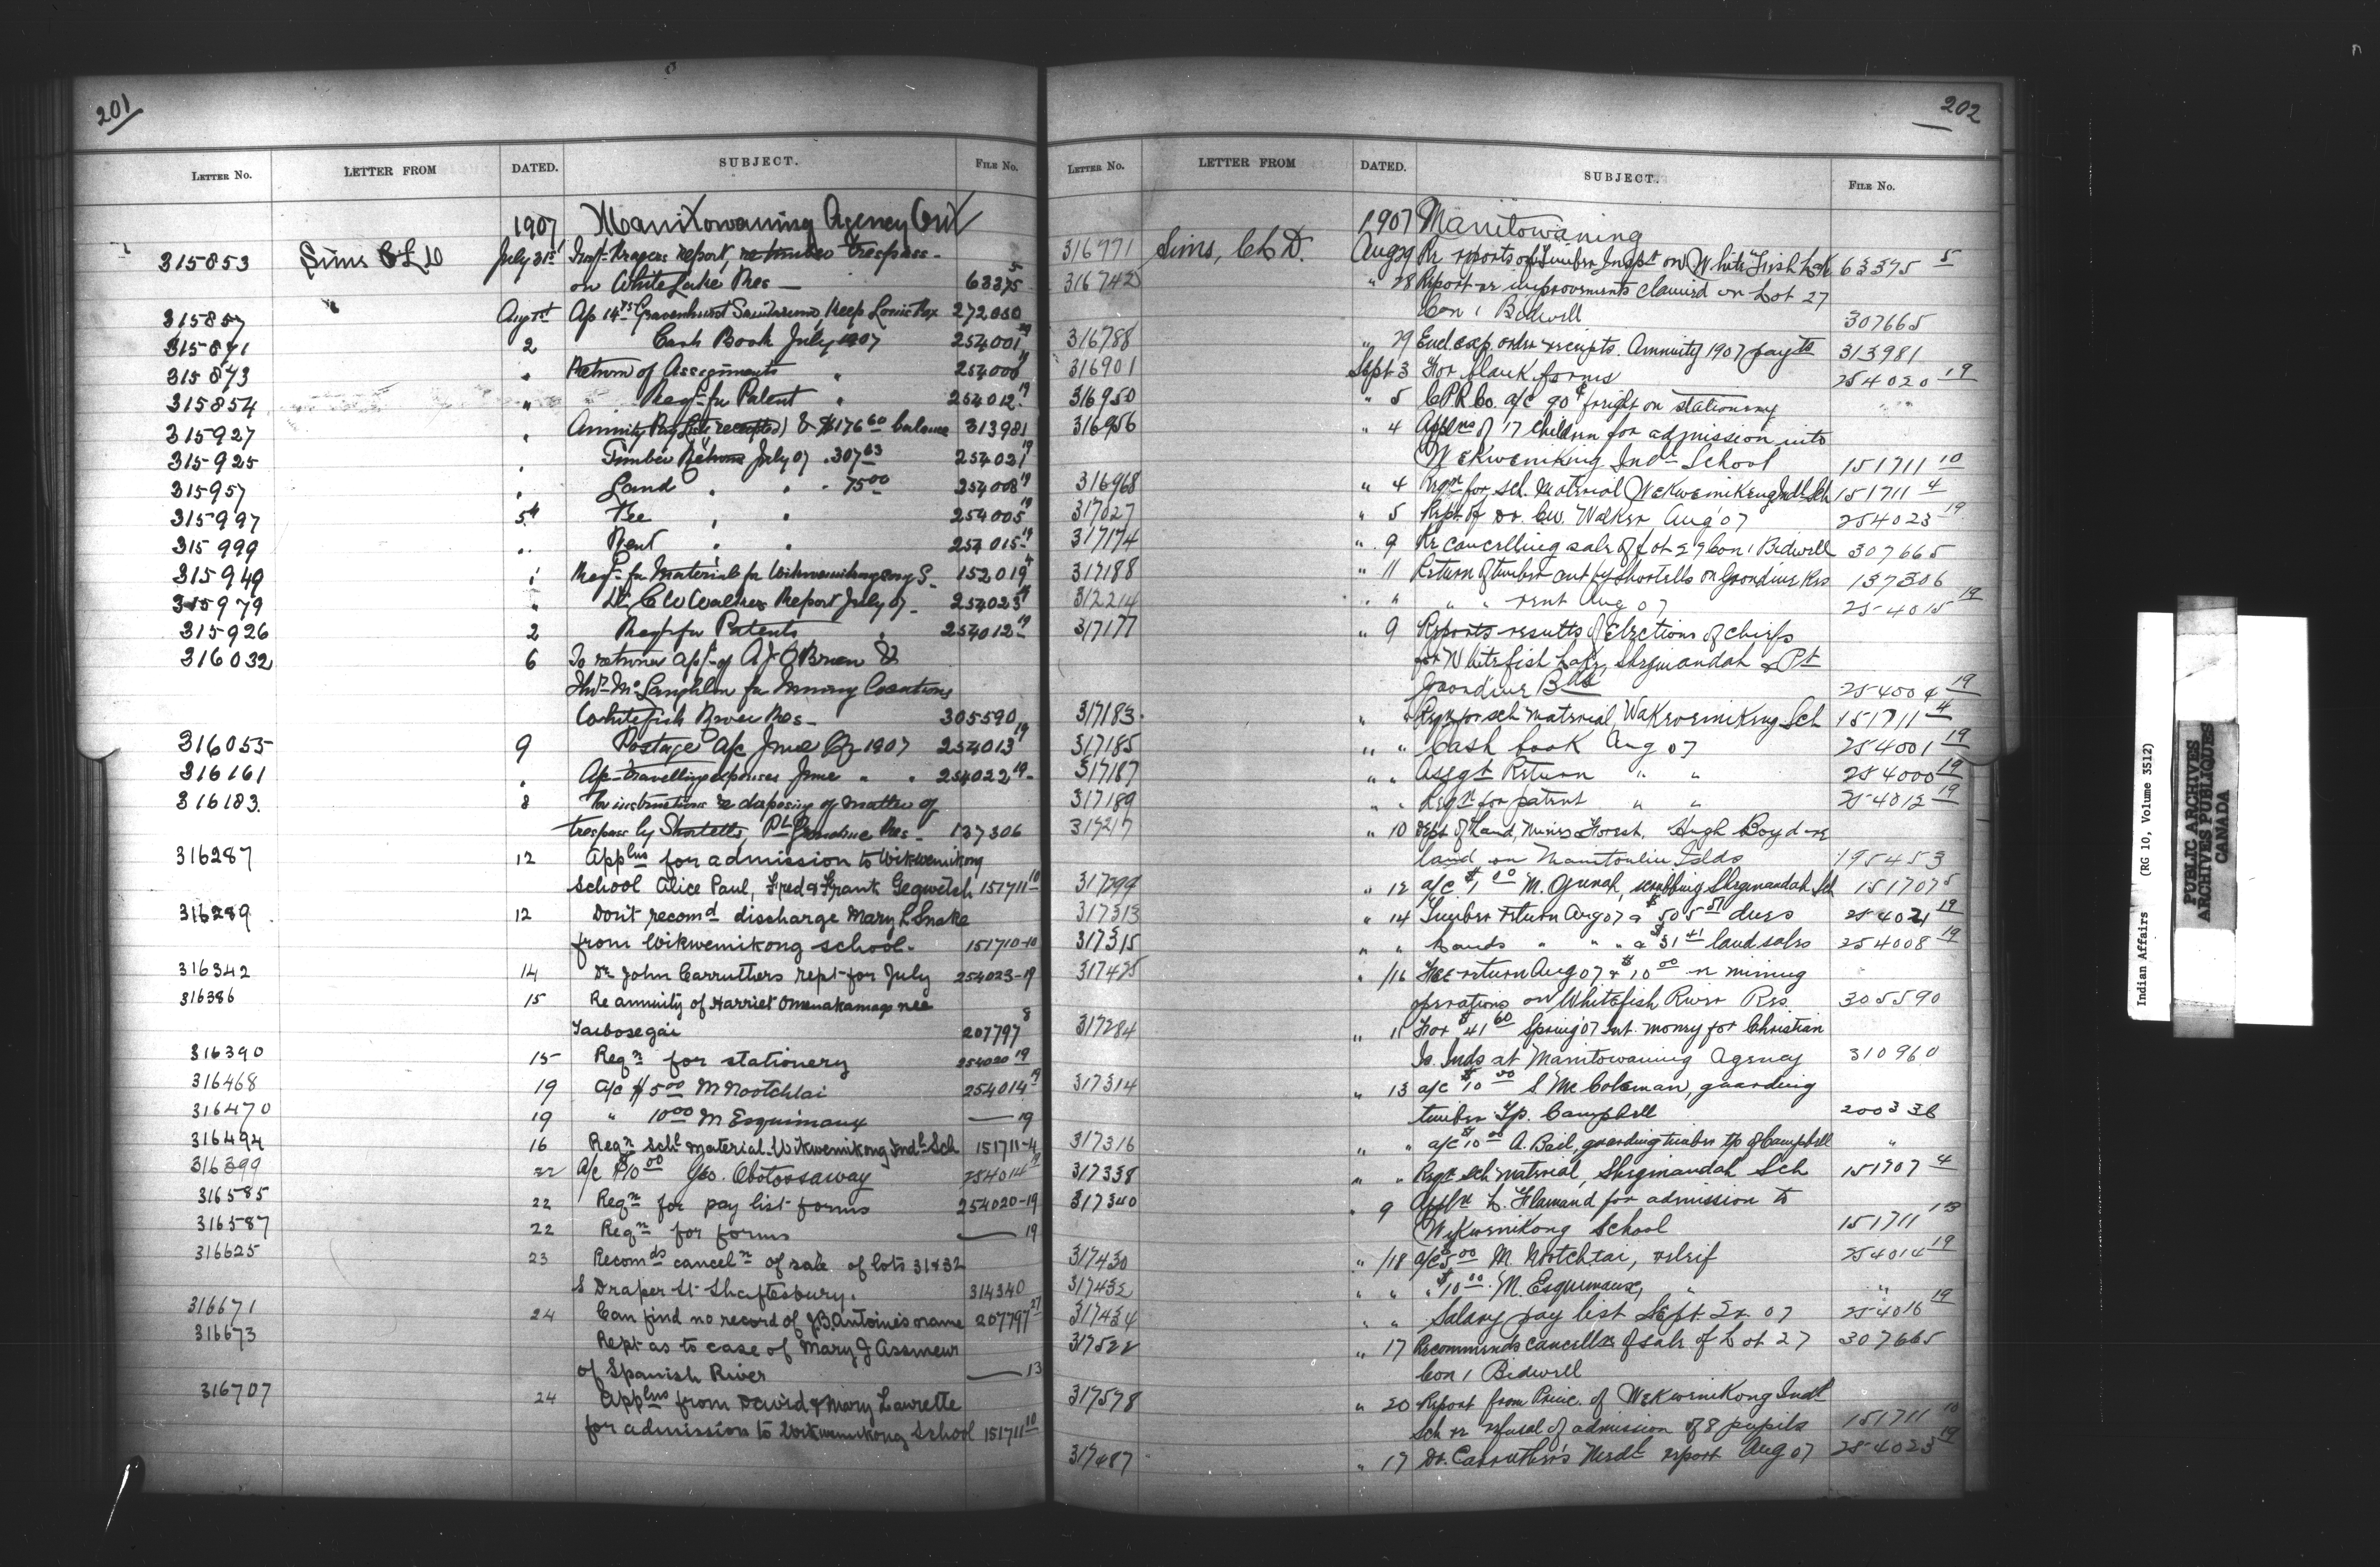 201
LETTER No. LETTER FROM DATED. SUBJECT. FILE No.
1907 Manitowaning Agency Ont
315853 Sims C L D July 31st Insp. report, re timber trespass
on White Lake Res — 63375 5
315857 Aug 1st Ap 14.75 Gravenhurst Sanitarium, keep 272080
315871 2 Cash Book July 1907 254001 19
315873 " Return of Assignments " 254000 19
315854 " Reqn for Patent " 254012 19
315927 " Annuity Pay Lists receipted & $176 60 balance 313981
315925 " Timber Returns July 07 . 307 63 254021 19
315957 " Land " " . 75 00 254008 19
315997 5th Fee " " 254005 19
315999 " Rent " " 254015 19
315949 " Reqn for Material for 152019 4
315979 " Dr. C W Walkers Report July 07 254023 19
315926 2 Reqn for Patents " 254012 19
316032 6 To return apl of A J O'Brien &
McLaughlin for Mining Locations
Whitefish River Res — 305590
316055 9 Postage a/c June Qr 1907 254013 19
316161 " A/c travelling expenses June " " 254022 19
316183. 8 For instructions re disposing of matter of
trespass by Shortells, Pt Grondine Res — 137306
316287 12 Applns for admission to Wikwemikong
School Alice Paul, Fred & Frank Gegwetch 151711 10
316289 12 Don't recomd discharge Mary L Snake
from Wikwemikong school. 151710-10
316342 14 Dr John Carruthers rept for July 254023-19
316386 15 Re annuity of Harriet Omenakamago nee
Taibosegai 207797 8
316390 15 Reqn for stationery 254020 19
316468 19 a/c $5 00 M Nootchtai 254014 19
316470 19 " 10 00 M Esquimaux — 19
316494 16 Reqn Schl material Wikwemikong Indl Sch 151711-4
316399 22 A/c $10 00 Geo. Obotossaway 254014 19
316585 22 Reqn for pay list forms 254020-19
316587 22 Reqn for forms — 19
316625 23 Recomds canceln of sale of lots 31 & 32
S Draper St Shaftesbury. 314340
316671 24 Can find no record of J.B. Antoine's name 207797 27
316673 Rept as to case of Mary J Assineur
of Spanish River — 13
316707 24 Applns from David & Mary Laurette
for admission to Wikwemikong School 151711 10
202
LETTER No. LETTER FROM DATED. SUBJECT. FILE No.
1907 Manitowaning
316771 Sims, C L D. Aug 29 Re reports of Timber Inspt on White Fish Lak 63375 5
316742 " 28 Report re improvements claimed on Lot 27
Con 1 Bidwell 307665
316788 " 29 Encl exp. order receipts. Annuity 1907 payts 313981
316901 Sept 3 For blank forms 254020 19
316950 " 5 C.P.R. Co. a/c 90¢ freight on stationery
316956 " 4 Applns of 17 children for admission into
Wekwemikong Indl School 151711 10
316968 " 4 Reqn for sch. material Wekwemikong Indl Sch 151711 4
317027 " 5 Rept of Dr. C.W. Walker Aug '07 254023 19
317174 " 9 Re cancelling sale of Lot 29 Con 1 Bidwell 307665
317188 " 11 Return of timber cut by Shortells on Grondine Res 137306
312214 " " " " rent Aug 07 254015 19
317177 " 9 Reports results of Elections of chiefs
for Whitefish Lake, Shegiuandah & Pt
Grondine Bds 254004 19
317183. " " Reqn for sch material, Wakwemikong Sch 151711 4
317185 " " Cash book Aug 07 254001 19
317187 " " Assgt Return " " 254000 19
317189 " " Reqn for patent " " 254012 19
317217 " 10 Dept of Land, Mines Forest. Hugh Boyd re
land on Manitoulin Islds 195453
317299 " 12 a/c $1 00 M. Gunah, scrubbing Shegiuandah Sch 151707 5
317313 " 14 Timber return Aug 07 & $505 51 dues 254021 19
317315 " " Lands " " " & $31 41 land sales 254008 19
317425 " /16 Fee return Aug 07 & $10 00 re mining
operations on Whitefish River Res. 305590
317284 " 11 For $41 60 Spring '07 int. money for Christian
Is. Inds at Manitowaning Agency 310960
317314 " 13 a/c $10 00 S McColeman, guarding
timber Tp. Campbell 200338
317316 " " a/c $10 00 A. Beil, guarding timber tp of Campbell "
317338 " " Reqn sch material, Shegiuandah Sch 151707 4
317340 " 9 Appln L. Flamand for admission to
Wekwemikong School 151711 10
317430 " /18 a/c $5 00 M. Nootchtai, relief 254014 19
317432 " " " $10 00 M. Esquimaux, " "
317434 " " Salary pay list Sept Qr. 07 254016 19
317522 " 17 Recommends cancelln of sale of Lot 27 307665
Con 1 Bidwell
317578 " 20 Report from Princ. of Wekwemikong Indl
Sch re refusal of admission of 8 pupils 151711 10
317487 " 17 Dr. Carruther's Medl report Aug 07 254023 19
Indian Affairs (RG 10, Volume 3512)
PUBLIC ARCHIVES
ARCHIVES PUBLIQUES
CANADA